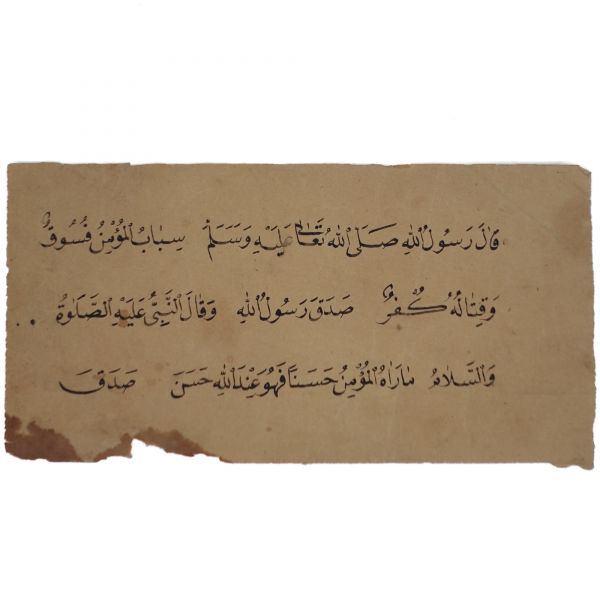 قَالَ رَسُولُ اللهِ صَلَى اللهُ تَعَالٰى عَلَيْهِ وَسَلَمْ سِبَابُ الْمُؤْمِنِ فُسُوقٌ
وَقِتَالُهُ كُفْرٌ صَدَقَ رَسُولُ اللهِ وَقَالَ النَّبِىُّ عَلَيْهِ الصَّلٰوةُ
وَالسَّلَامُ مَارَاٰهُ الْمُؤْمِنُ حَسَنًا فَهُوَ عِنْدَ اللهِ حَسَنَ صَدَقَ